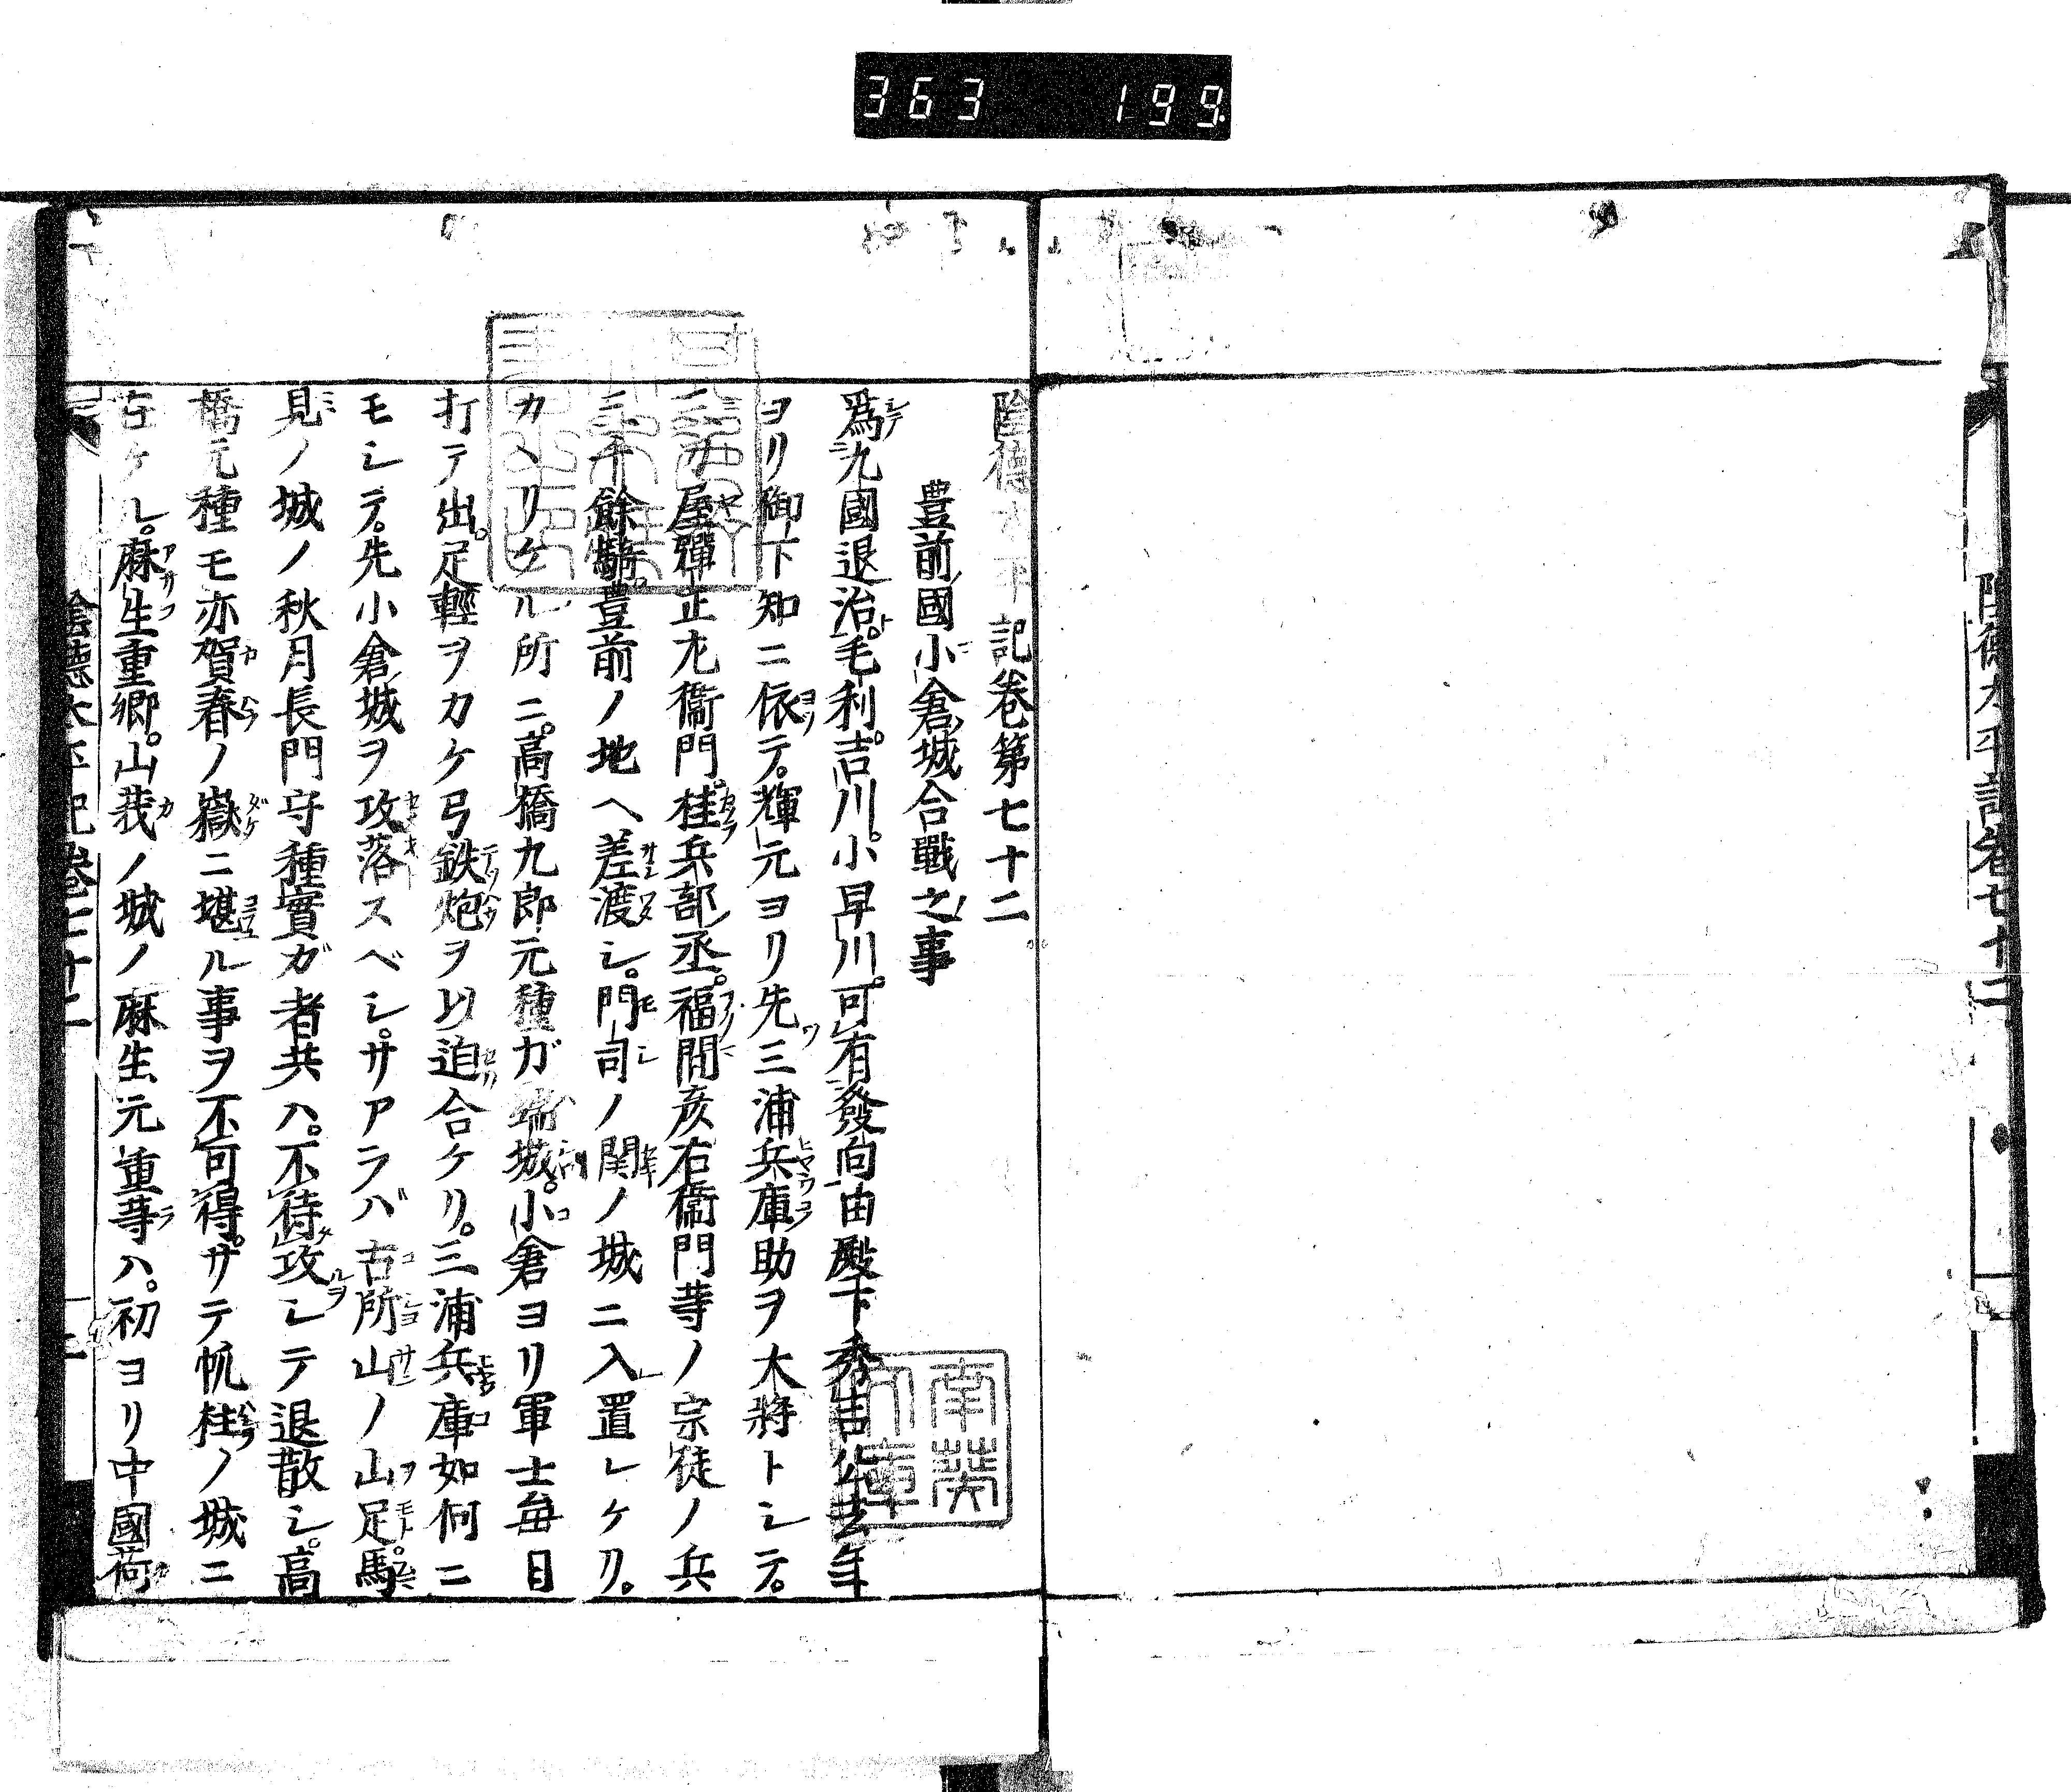 363 199
陰德太平記卷七十二
陰德太平記卷第七十二
豊前國小倉城合戰之事
爲九國退治。毛利。吉川。小早川。可有發向由殿下秀吉公去年
ヨリ御下知ニ依テ。輝元ヨリ先三浦兵庫助ヲ大將トシテ。
屋彈正左衞門。桂兵部丞。福間彦右衞門等ノ宗徒ノ兵
三千餘騎。豊前ノ地ヘ差渡シ。門司ノ関ノ城ニ入置レケリ。
カヽリケル所ニ。高橋九郎元種ガ端城。小倉ヨリ軍士毎日
打テ出。足輕ヲカケ弓鉄炮ヲ以迫合ケリ。三浦兵庫如何ニ
モシテ。先小倉城ヲ攻落スベシ。サアラバ古所山ノ山足。馬
見ノ城ノ秋月長門守種實ガ者共ハ。不待攻シテ退散シ。高
橋元種モ亦賀春ノ嶽ニ堪ル事ヲ不可得。サテ帆柱ノ城ニ
在ケル。麻生重郷。山莪ノ城ノ麻生元重等ハ。初ヨリ中國荷
陰德太平記卷七十二 一
南葵文庫